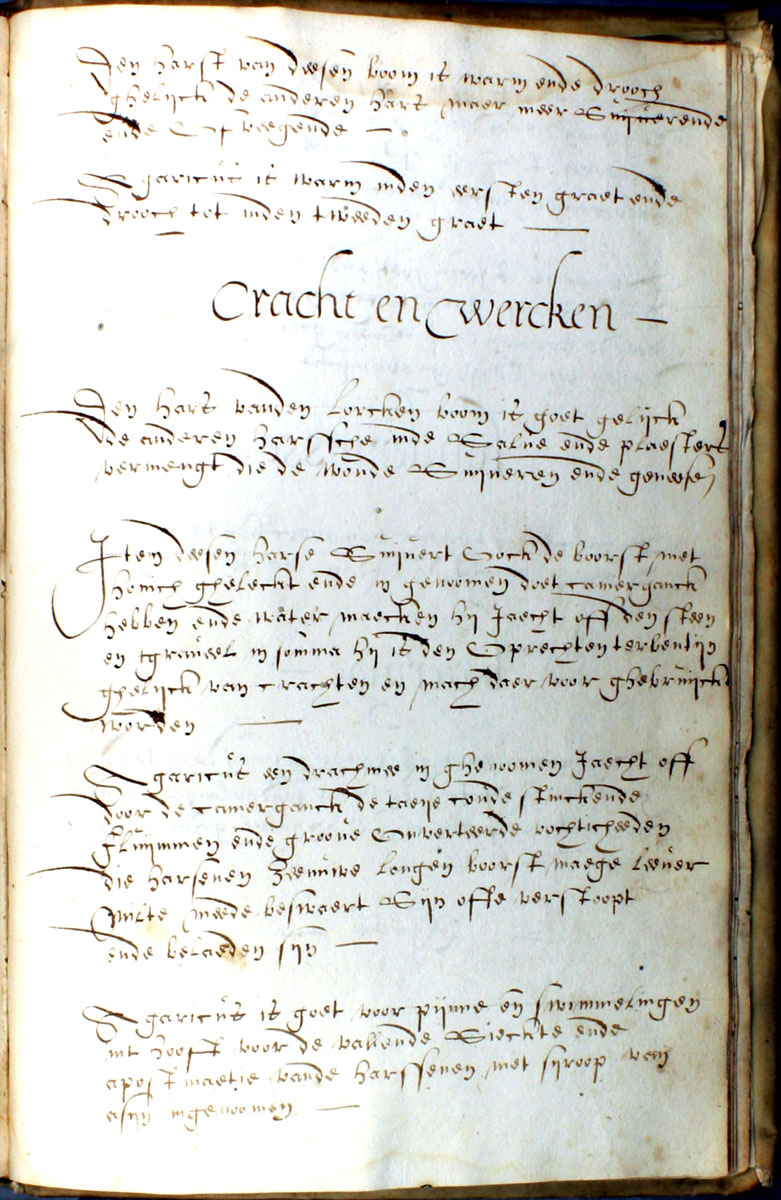 Den harst van deesen boom is warm ende drooch
ghelijck de anderen hars maer meer Suijverende
ende Of veegende —
Agaricus is warm inden eersten graet ende
drooch tot inden tweeden graet —
Cracht en Wercken —
Den hars vanden Lorcken boom is goet gelijck
de anderen harssche inde Salve ende plaesters
vermengt die de wonde Suijveren ende geneesen
Item deesen harse Suijvert Oock de boorst met
honich gheleckt ende in genoomen doet camerganck
hebben ende water maecken hij Jaecht off den steen
en tgraveel in somma hij is den Oprechten terbentijn
ghelijck van crachten en mach daer voor ghebruijckt
worden —
Agaricus een drachmee in ghenoomen Jaecht off
door de camerganck de taeije coude stinckende
fluijmmen ende groove Onverteerde vochticheeden
die harsenen Zeenuwe longen boorst maege leever
Milte meede beswaert Sijn offte verstoopt
ende belaeden sijn —
Agaricus is goet voor pijnne en swimmelingen
int hooft voor de vallende Sieckte ende
apostmaetie vande harssenen met sijroop van
asijn ingenoomen —